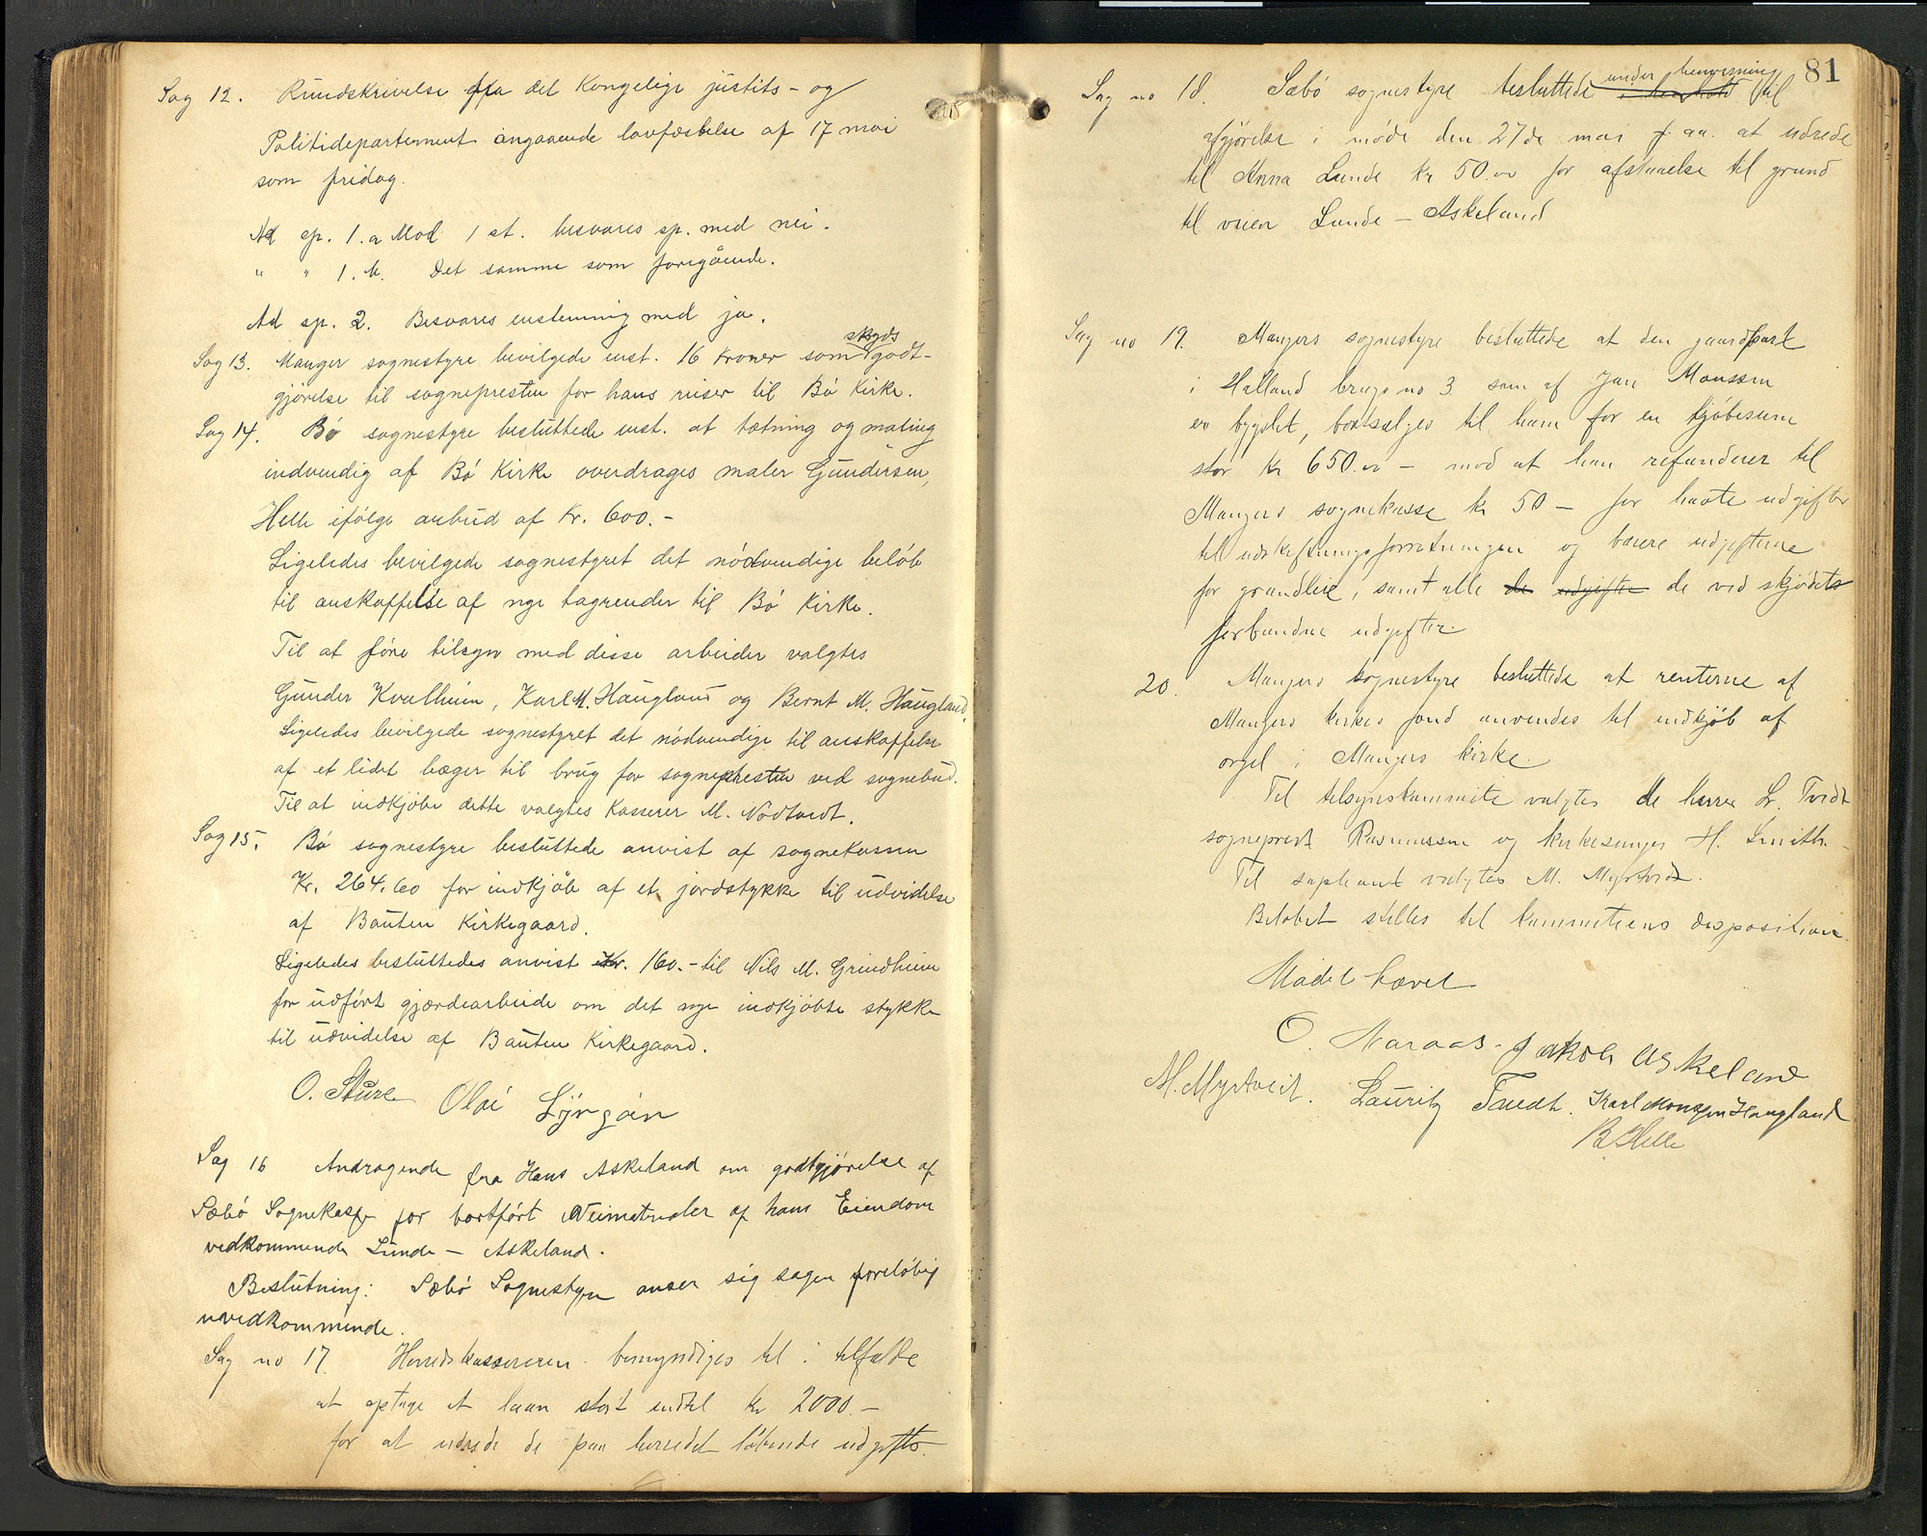 Sag 12. Rundskrivelse fra det Kongelige justits- og
Politidepartement angaaende lovfæstelse af 17 mai
som fridag.
Ad sp. 1.a Mod 1 st. besvares sp. med nei.
" " 1.b. Det samme som foregående.
Ad sp. 2. Besvares enstemmig med ja.
Sag 13. Manger sognestyre bevilgede enst. 16 Kroner som skyds godt-
gjørelse til sognepresten for hans reiser til Bø Kirke.
Sag 14. Bø sognestyre besluttede enst. at tætning og maling
indvendig af Bø Kirke overdrages maler Gundersen,
Helle ifølge anbud af Kr. 600.-
Ligeledes bevilgede sognestyret det nødvendige beløb
til anskaffelse af nye tagrender til Bø Kirke.
Til at føre tilsyn med disse arbeider valgtes
Gunder Kvalheim, Karl M. Haugland og Bernt M. Haugland.
Ligeledes bevilgede sognestyret det nødvendige til anskaffelse
af et lidet bæger til brug for sognepresten ved sognebud.
Til at indkjøbe dette valgtes Kasserer M. Nødtvedt.
Sag 15. Bø sognestyre besluttede anvist af sognekassen
Kr. 264.60 for indkjøb af et jordstykke til udvidelse
af Bauten Kirkegaard.
Ligeledes besluttedes anvist Kr. 160.- til Nils M. Grindheim
for udført gjærdearbeide om det nye indkjøbte stykke
til udvidelse af Bauten Kirkegaard.
O. Sture Olai Lyngån
Sag 16 Andragende fra Hans Askeland om godtgjørelse af
Sæbø Sognekasse for bortført Veimaterialer af hans Eiendom
vedkommende Lunde - Askeland.
Beslutning: Sæbø Sognestyre anser sig sagen foreløbig
uvedkommende.
Sag no 17. Herredskassereren bemyndiges til i tilfælde
at optage et laan stort indtil kr 2000.-
for at udrede de paa herredet løbende udgifter.
81
Sag no 18. Sæbø sognestyre besluttede i henhold under henvisning til
afgjørelse i møde den 27de mai f. aa. at udrede
til Anna Lunde kr 50.00 for afstaaelse til grund
til veien Lunde - Askeland
Sag no 19. Mangers sognestyre besluttede at den gaardpart
i Halland brugs no 3 som af Jan Monssen
er bygslet, bortsælges til ham for en kjøbesum
stor kr 650.00 - mod at han refunderer til
Mangers sognekasse kr 50 - for havte udgifter
til udskiftningsforretningen og bærer udgifterne
for grundleie, samt alle de udgifter de ved skjødets
forbundne udgifter.
20. Mangers sognestyre besluttede at renterne af
Mangers kirkes fond anvendes til indkjøb af
orgel i Mangers kirke.
Til tilsynskommite valgtes de herrer L. Tvedt
sogneprest Rasmussen og kirkesanger H. Smith.
Til supleant valgtes M. Myrtvedt.
Beløbet stilles til kommiteens disposition.
Mødet hævet
O. Maraas. Jakob Askeland
M. Myrtveit. Lauritz Tvedt. Karl Monsen Haugland
B Helle